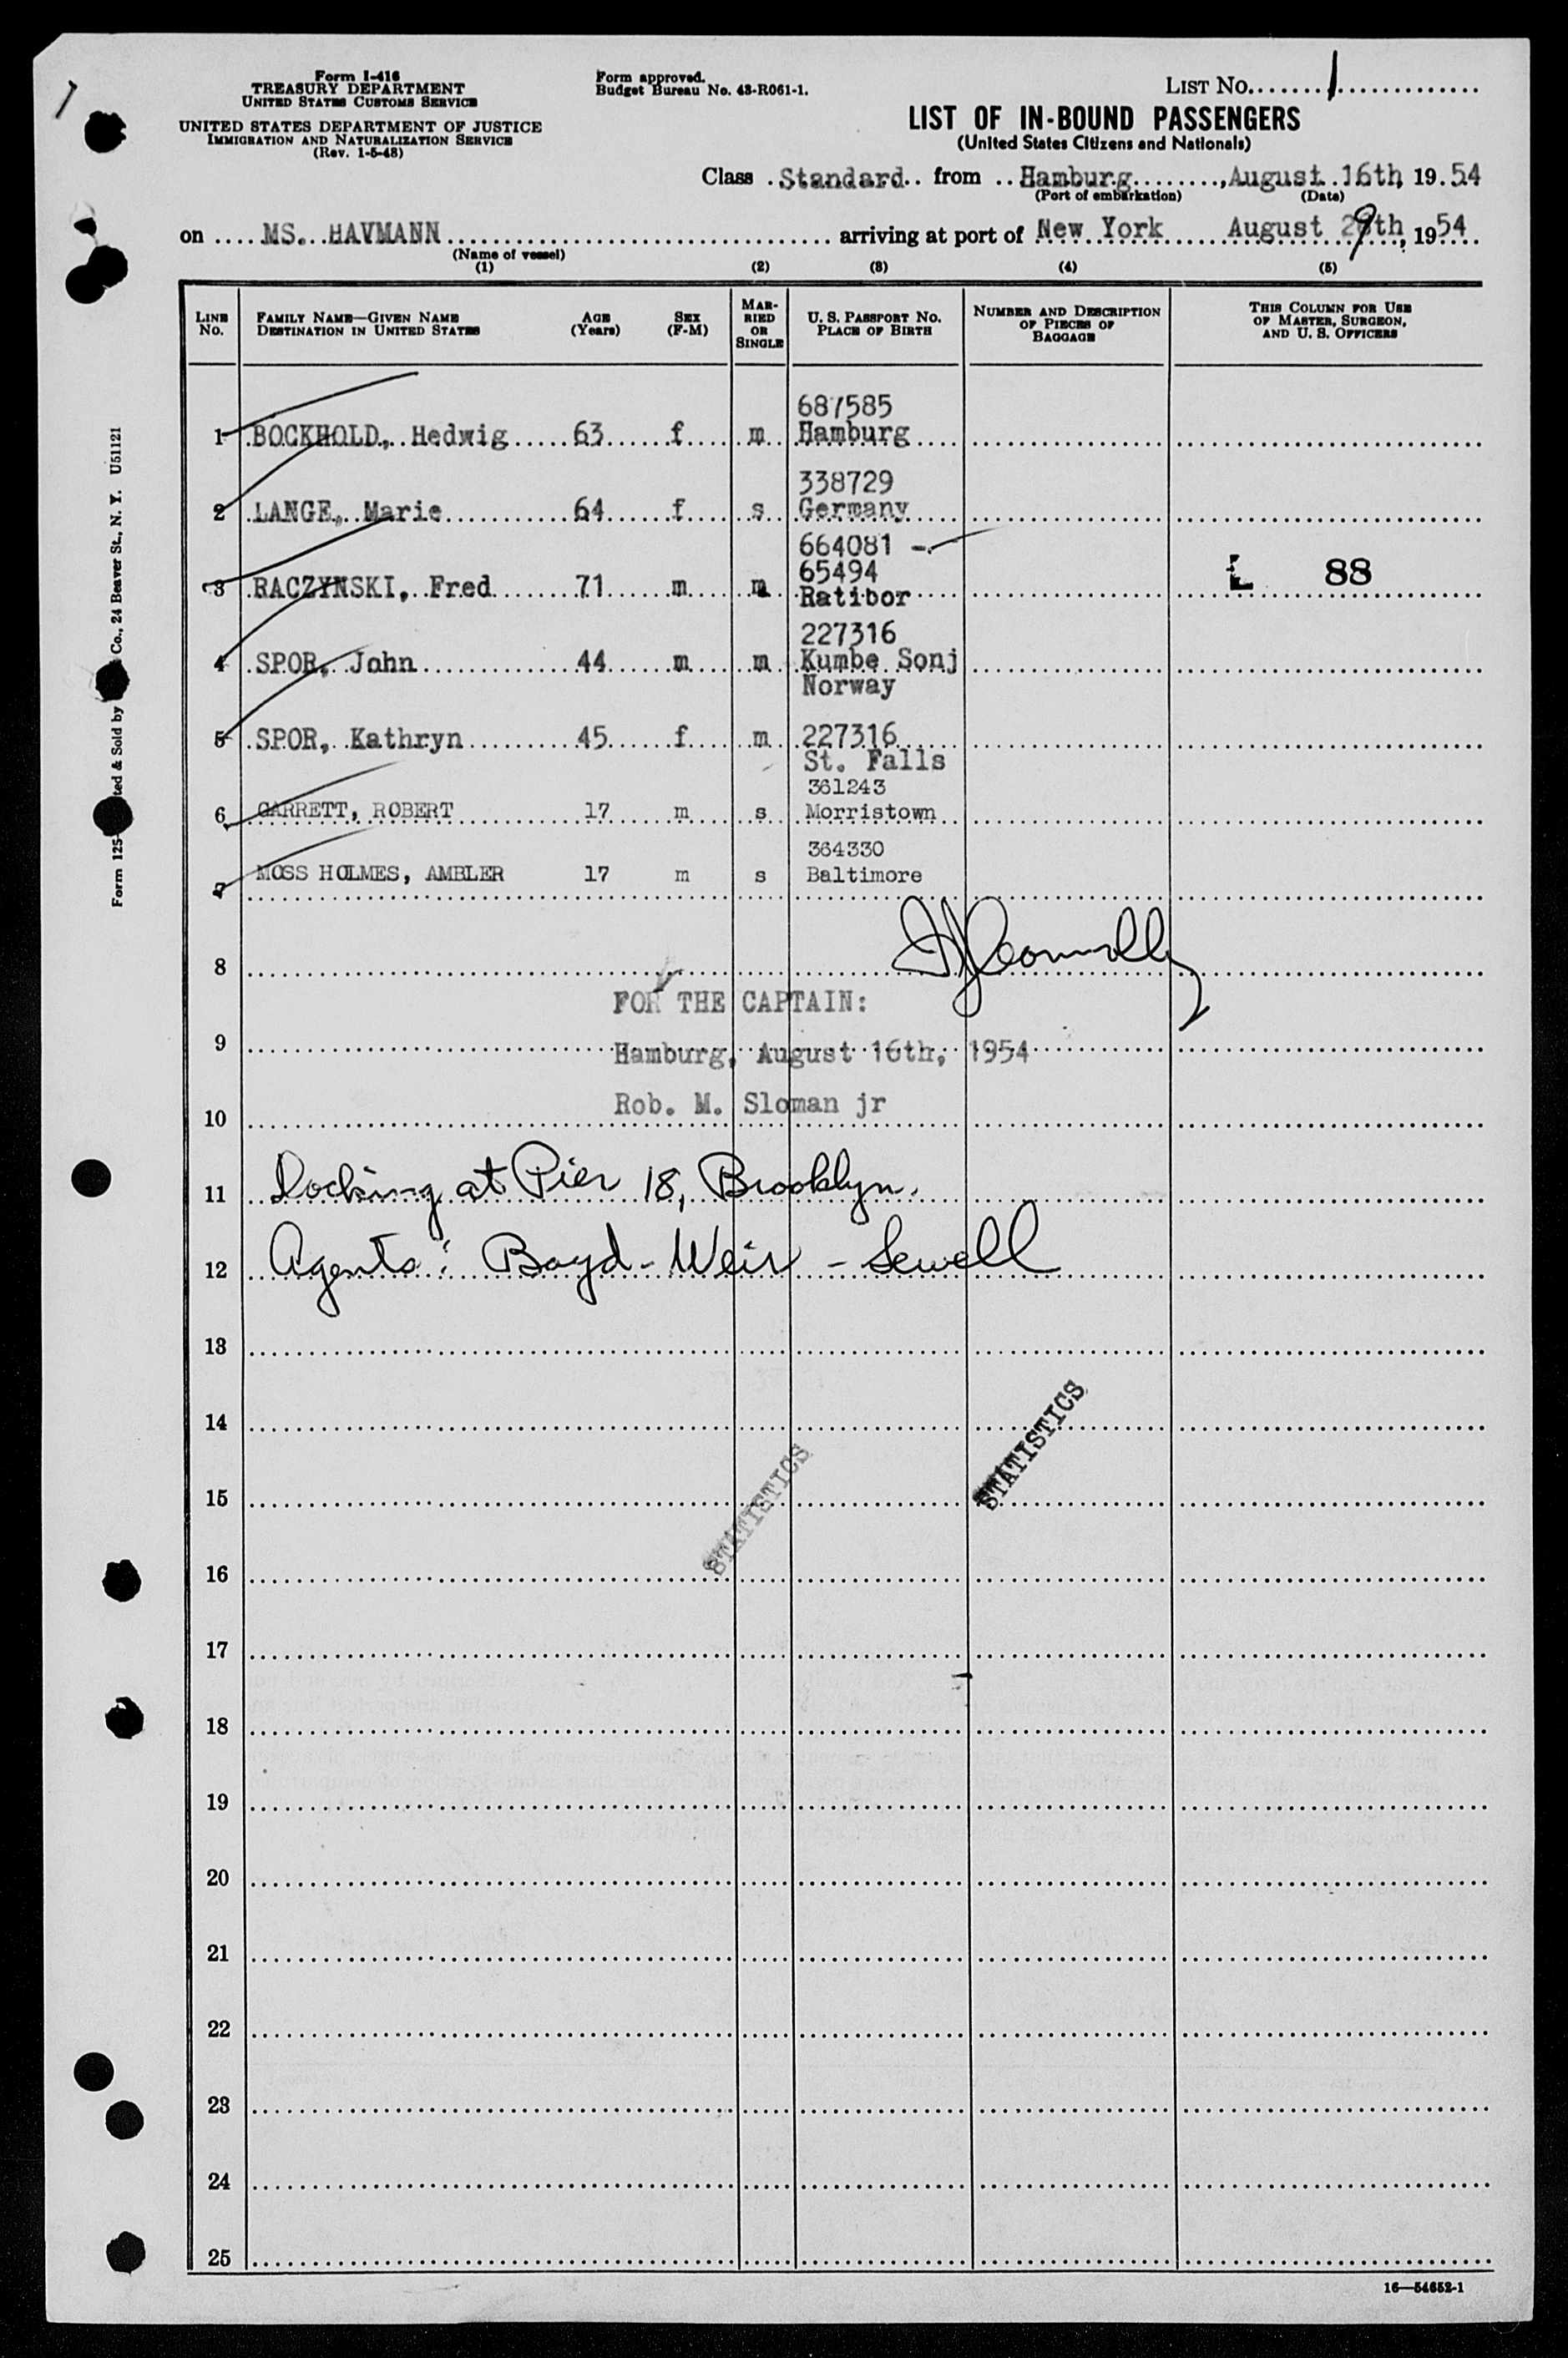 Form I-416
TREASURY DEPARTMENT
UNITED STATES CUSTOMS SERVICE
UNITED STATES DEPARTMENT OF JUSTICE
IMMIGRATION AND NATURALIZATION SERVICE
(Rev. 1-5-48)
Form approved.
Budget Bureau No. 43-R061-1.
LIST NO. 1
LIST OF IN-BOUND PASSENGERS
(United States Citizens and Nationals)
Class Standard from Hamburg, August 16th, 1954
(Port of embarkation) (Date)
on MS. HAVMANN arriving at port of New York August 29th, 1954
(Name of vessel)
(1) (2) (3) (4) (5)
LINE NO.
FAMILY NAME—GIVEN NAME
DESTINATION IN UNITED STATES
AGE (Years)
SEX (F-M)
MARRIED OR SINGLE
U. S. PASSPORT NO.
PLACE OF BIRTH
NUMBER AND DESCRIPTION OF PIECES OF BAGGAGE
THIS COLUMN FOR USE OF MASTER, SURGEON, AND U. S. OFFICERS
687585
1 BOCKHOLD, Hedwig 63 f m Hamburg
338729
2 LANGE, Marie 64 f s Germany
664081 -
65494
3 RACZYNSKI, Fred 71 m m Ratibor L 88
227316
4 SPOR, John 44 m m Kumbe Sonj
Norway
5 SPOR, Kathryn 45 f m 227316
St. Falls
361243
6 GARRETT, ROBERT 17 m s Morristown
364330
7 MOSS HOLMES, AMBLER 17 m s Baltimore
8
FOR THE CAPTAIN:
9 Hamburg, August 16th, 1954
Rob. M. Sloman jr
10
11 Docking at Pier 18, Brooklyn.
12 Agents: Boyd-Weir-Sewell
13
14
STATISTICS
15
STATISTICS
16
17
18
19
20
21
22
23
24
25
16—54652-1
Co., 24 Beaver St., N. Y. U51121
ted & Sold by
Form 125-